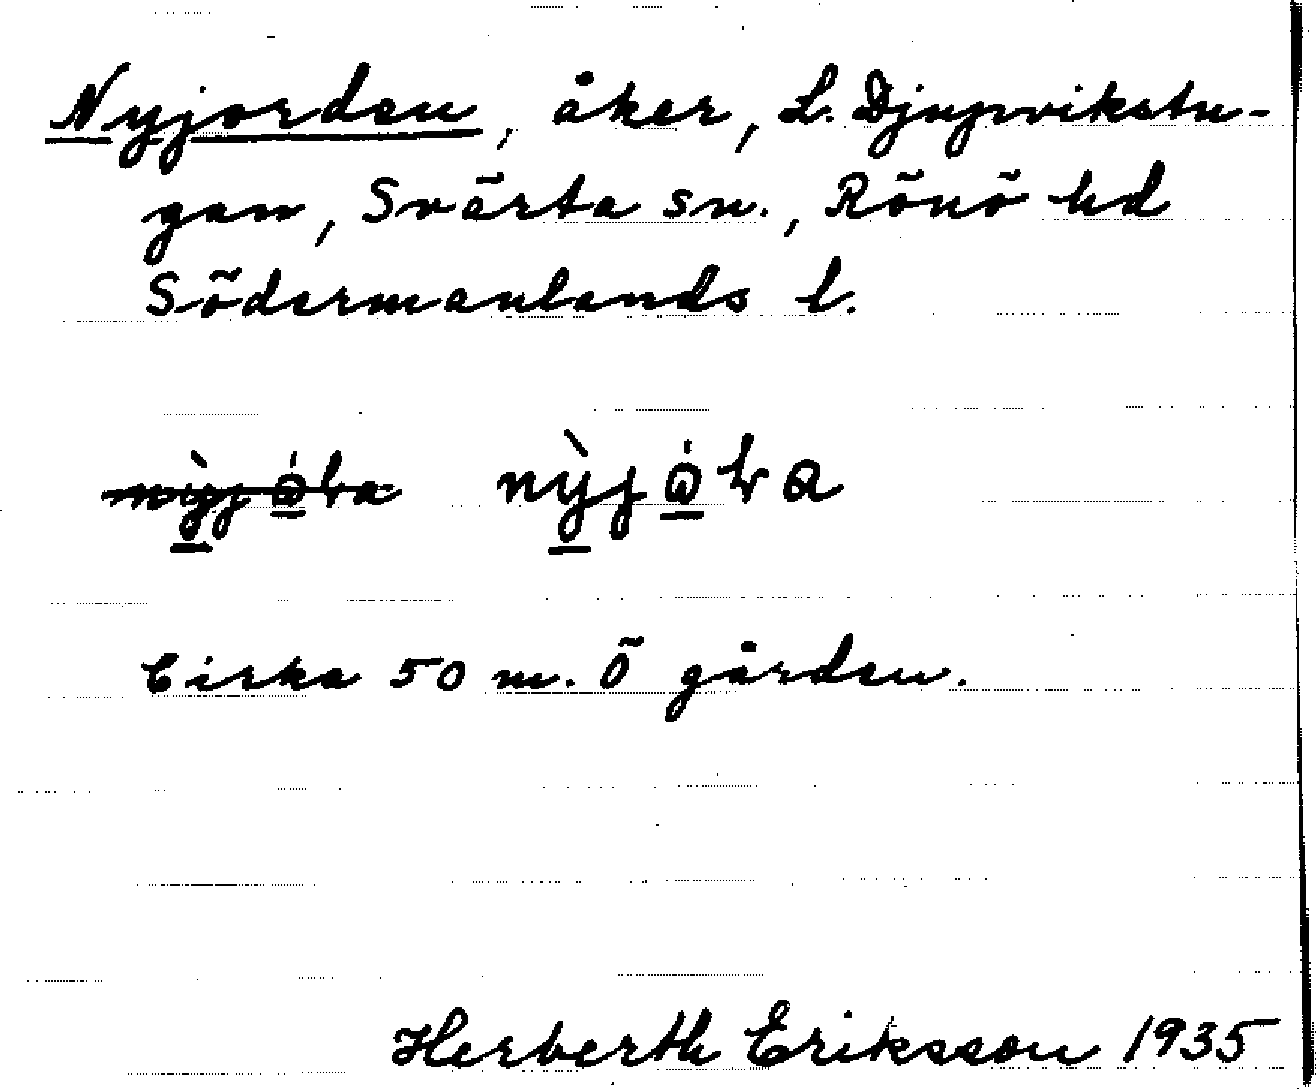 Nyjorden, åker, L. Djupvikstu-
gan, Svärta sn., Rönö hd
Södermanlands l.
nỳjo̲
Cirka 50 m. Ö gården.
Herberth Eriksson 1935